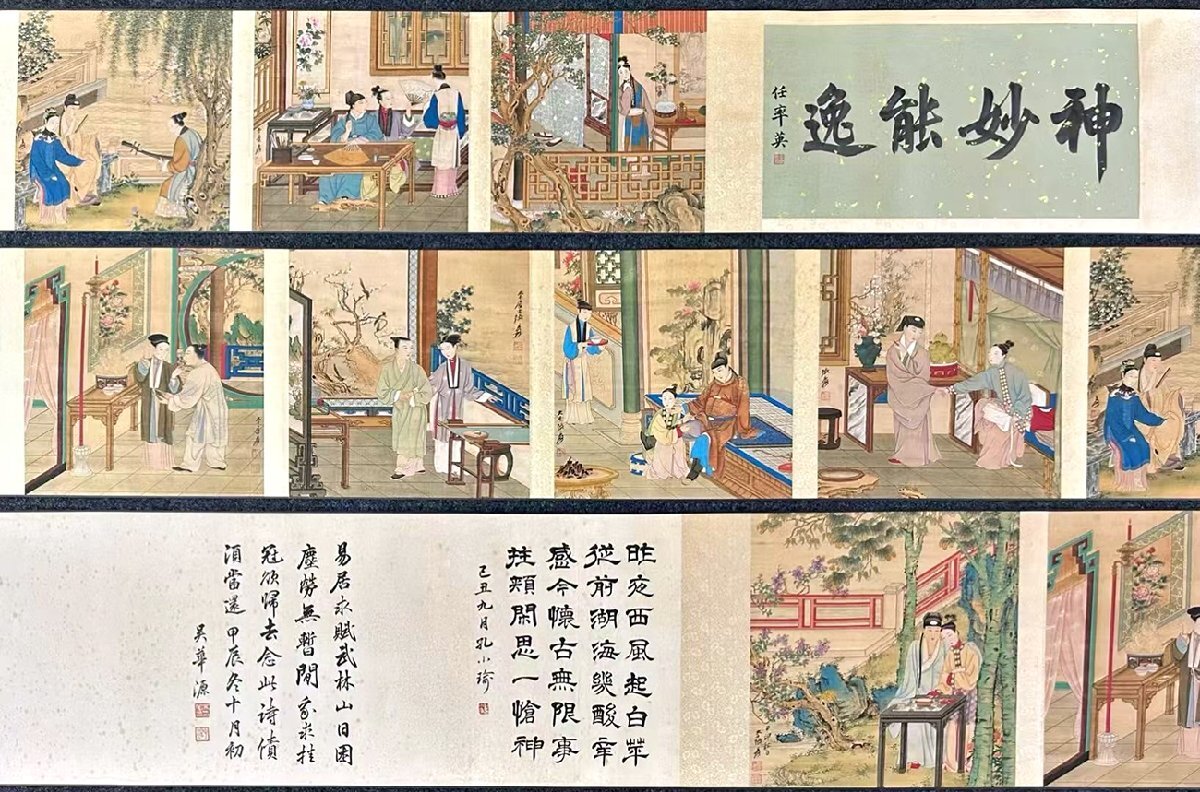 神妙能逸
任率英
昨夜西風起白苹
從前湖海幾酸辛
感今懷古無限事
拄頰閑思一愴神
己丑九月孔小瑜
易居求賦武林山日困
塵勞無暫閒挂
冠欲歸去念此詩債
湏當還 甲辰冬十月初
吳華源